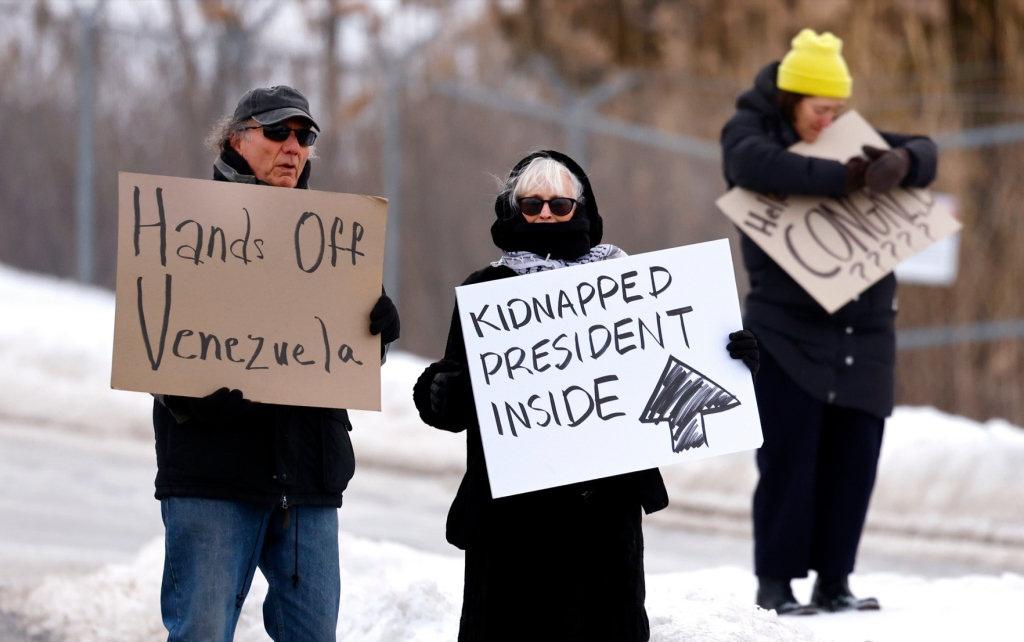 Hands Off
Venezuela
KIDNAPPED
PRESIDENT
INSIDE
?????